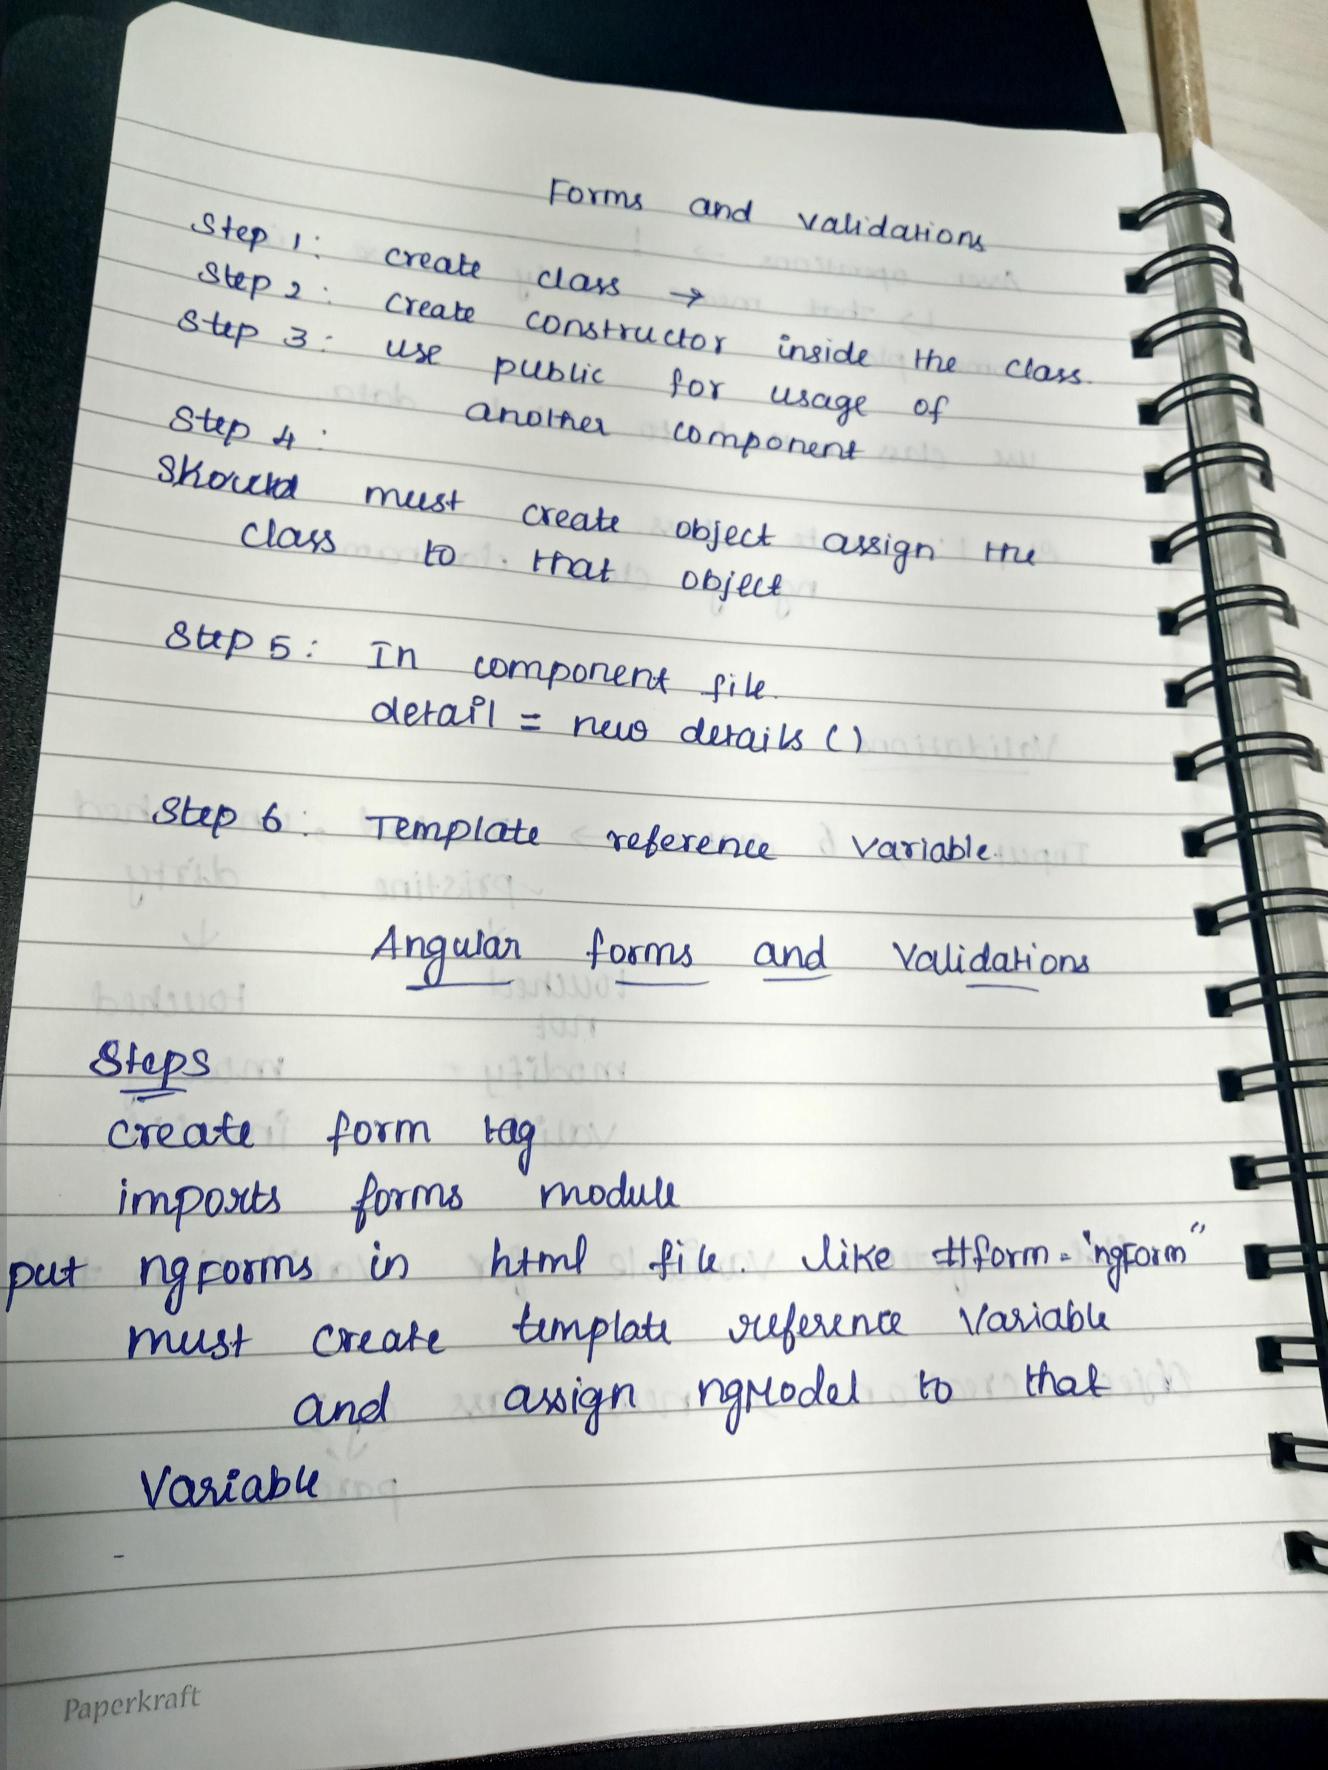 Forms and validations
Step 1: create class →
Step 2: create constructor inside the class.
Step 3: use public for usage of
another component
Step 4:
Should must create object assign the
class to that object
Step 5: In component file.
detail = new details ()
Step 6: Template reference variable.
Angular forms and Validations
Steps
create form tag
imports forms module
put ngForms in html file. like #form="ngForm"
must create template reference Variable
and assign ngModel to that
Variable
-
Paperkraft